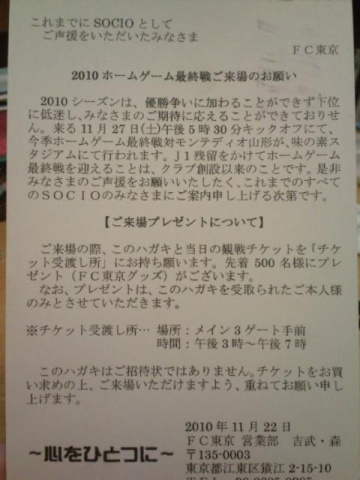 これまでにSOCIOとして
ご声援をいただいたみなさま
FC東京
2010 ホームゲーム最終戦ご来場のお願い
2010シーズンは、優勝争いに加わることができず下位
に低迷し、みなさまのご期待に応えることができておりせ
ん。来る11月27日(土)午後5時30分キックオフにて、
今季ホームゲーム最終戦対モンテディオ山形が、味の素ス
タジアムにて行われます。J1残留をかけてホームゲーム
最終戦を迎えることは、クラブ創設以来のことです。是非
みなさまのご声援をお願いいたしたく、これまでのすべて
のSOCIOのみなさまにご案内申し上げる次第です。
【ご来場プレゼントについて】
ご来場の際、このハガキと当日の観戦チケットを「チケッ
ト受渡し所」にお持ち願います。先着500名様にプレ
ゼント（FC東京グッズ）がございます。
なお、プレゼントは、このハガキを受取られたご本人様
のみとさせていただきます。
※チケット受渡し所… 場所：メイン3ゲート手前
時間：午後3時～午後7時
このハガキはご招待状ではありません。チケットをお買
い求めの上、ご来場いただけますよう、重ねてお願い申し
上げます。
2010年11月22日
FC東京 営業部 吉武・森
〒135-0003
東京都江東区猿江2-15-10
～心をひとつに～